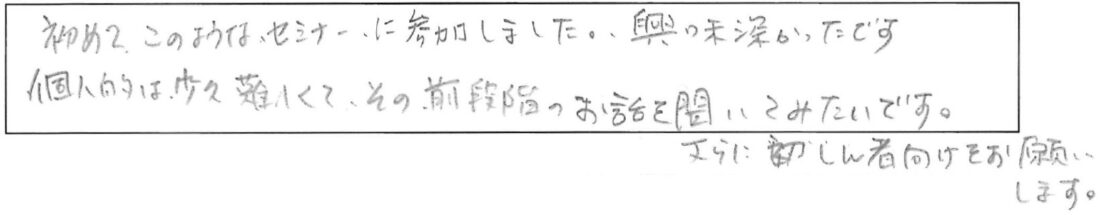 初めて、このような、セミナー、に参加しました。、興味深かったです
個人的は、少々難しくて、その前段階のお話を聞いてみたいです。
さらに初しん者向けをお願い
します。